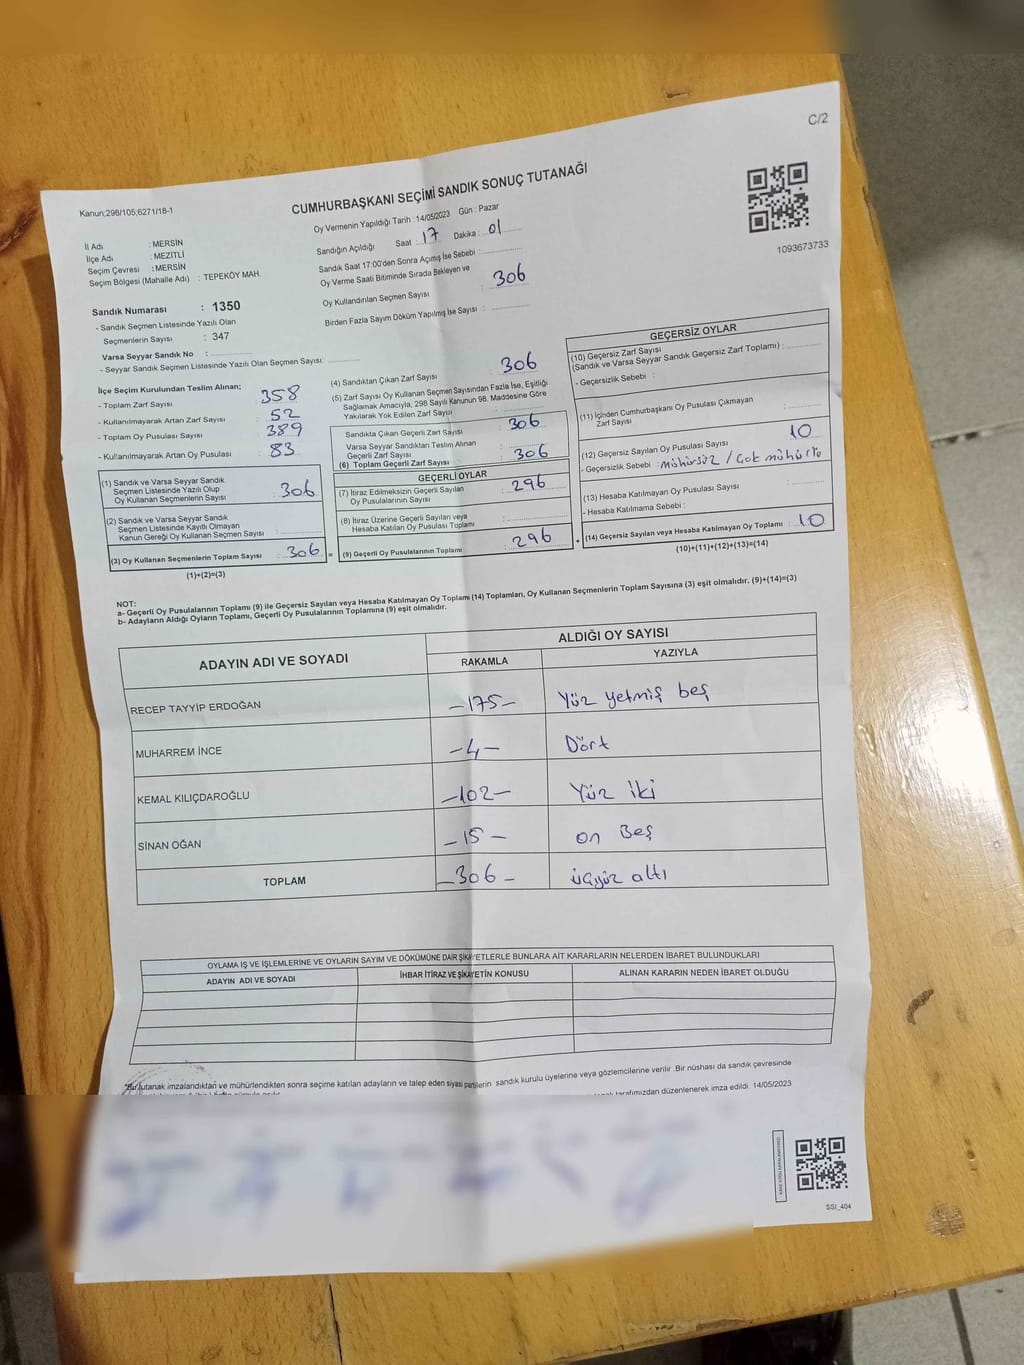 C/2
Kanun;298/105;6271/18-1
CUMHURBAŞKANI SEÇİMİ SANDIK SONUÇ TUTANAĞI
1093673733
İl Adı : MERSİN
İlçe Adı : MEZİTLİ
Seçim Çevresi : MERSİN
Seçim Bölgesi (Mahalle Adı) : TEPEKÖY MAH.
Sandık Numarası : 1350
- Sandık Seçmen Listesinde Yazılı Olan
Seçmenlerin Sayısı : 347
Varsa Seyyar Sandık No :
- Seyyar Sandık Seçmen Listesinde Yazılı Olan Seçmen Sayısı:
Oy Vermenin Yapıldığı Tarih : 14/05/2023 Gün : Pazar
Sandığın Açıldığı Saat : 17 Dakika : 01
Sandık Saat 17:00'den Sonra Açımış İse Sebebi :
Oy Verme Saati Bitiminde Sırada Bekleyen ve
Oy Kullandırılan Seçmen Sayısı : 306
Birden Fazla Sayım Döküm Yapılmış İse Sayısı :
İlçe Seçim Kurulundan Teslim Alınan;
- Toplam Zarf Sayısı : 358
- Kullanılmayarak Artan Zarf Sayısı : 52
- Toplam Oy Pusulası Sayısı : 389
- Kullanılmayarak Artan Oy Pusulası : 83
(1) Sandık ve Varsa Seyyar Sandık
Seçmen Listesinde Yazılı Olup
Oy Kullanan Seçmenlerin Sayısı : 306
(2) Sandık ve Varsa Seyyar Sandık
Seçmen Listesinde Kayıtlı Olmayan
Kanun Gereği Oy Kullanan Seçmen Sayısı :
(3) Oy Kullanan Seçmenlerin Toplam Sayısı : 306 =
(1)+(2)=(3)
(4) Sandıktan Çıkan Zarf Sayısı : 306
(5) Zarf Sayısı Oy Kullanan Seçmen Sayısından Fazla İse, Eşitliği
Sağlamak Amacıyla, 298 Sayılı Kanunun 98. Maddesine Göre
Yakılarak Yok Edilen Zarf Sayısı :
Sandıkta Çıkan Geçerli Zarf Sayısı : 306
Varsa Seyyar Sandıktan Teslim Alınan
Geçerli Zarf Sayısı :
(6) Toplam Geçerli Zarf Sayısı : 306
GEÇERLİ OYLAR
(7) İtiraz Edilmeksizin Geçerli Sayılan
Oy Pusulalarının Sayısı : 296
(8) İtiraz Üzerine Geçerli Sayılan veya
Hesaba Katılan Oy Pusulası Toplamı :
(9) Geçerli Oy Pusulalarının Toplamı : 296 +
GEÇERSİZ OYLAR
(10) Geçersiz Zarf Sayısı
(Sandık ve Varsa Seyyar Sandık Geçersiz Zarf Toplamı) :
- Geçersizlik Sebebi :
(11) İçinden Cumhurbaşkanı Oy Pusulası Çıkmayan
Zarf Sayısı :
(12) Geçersiz Sayılan Oy Pusulası Sayısı : 10
- Geçersizlik Sebebi : mühürsüz / Çok mühürlü
(13) Hesaba Katılmayan Oy Pusulası Sayısı :
- Hesaba Katılmama Sebebi :
(14) Geçersiz Sayılan veya Hesaba Katılmayan Oy Toplamı : 10
(10)+(11)+(12)+(13)=(14)
NOT:
a- Geçerli Oy Pusulalarının Toplamı (9) ile Geçersiz Sayılan veya Hesaba Katılmayan Oy Toplamı (14) Toplamları, Oy Kullanan Seçmenlerin Toplam Sayısına (3) eşit olmalıdır. (9)+(14)=(3)
b- Adayların Aldığı Oyların Toplamı, Geçerli Oy Pusulalarının Toplamına (9) eşit olmalıdır.
ADAYIN ADI VE SOYADI ALDIĞI OY SAYISI
RAKAMLA YAZIYLA
RECEP TAYYİP ERDOĞAN -175- Yüz yetmiş beş
MUHARREM İNCE -4- Dört
KEMAL KILIÇDAROĞLU -102- Yüz iki
SİNAN OĞAN -15- on Beş
TOPLAM -306- üçyüz altı
OYLAMA İŞ VE İŞLEMLERİNE VE OYLARIN SAYIM VE DÖKÜMÜNE DAİR ŞİKAYETLERLE BUNLARA AİT KARARLARIN NELERDEN İBARET BULUNDUKLARI
ADAYIN ADI VE SOYADI İHBAR İTİRAZ VE ŞİKAYETİN KONUSU ALINAN KARARIN NEDEN İBARET OLDUĞU
*Bu tutanak imzalandıktan ve mühürlendikten sonra seçime katılan adayların ve talep eden siyasi partilerin sandık kurulu üyelerine veya gözlemcilerine verilir. Bir nüshası da sandık çevresinde
tarafımızdan düzenlenerek imza edildi. 14/05/2023
SSİ_404